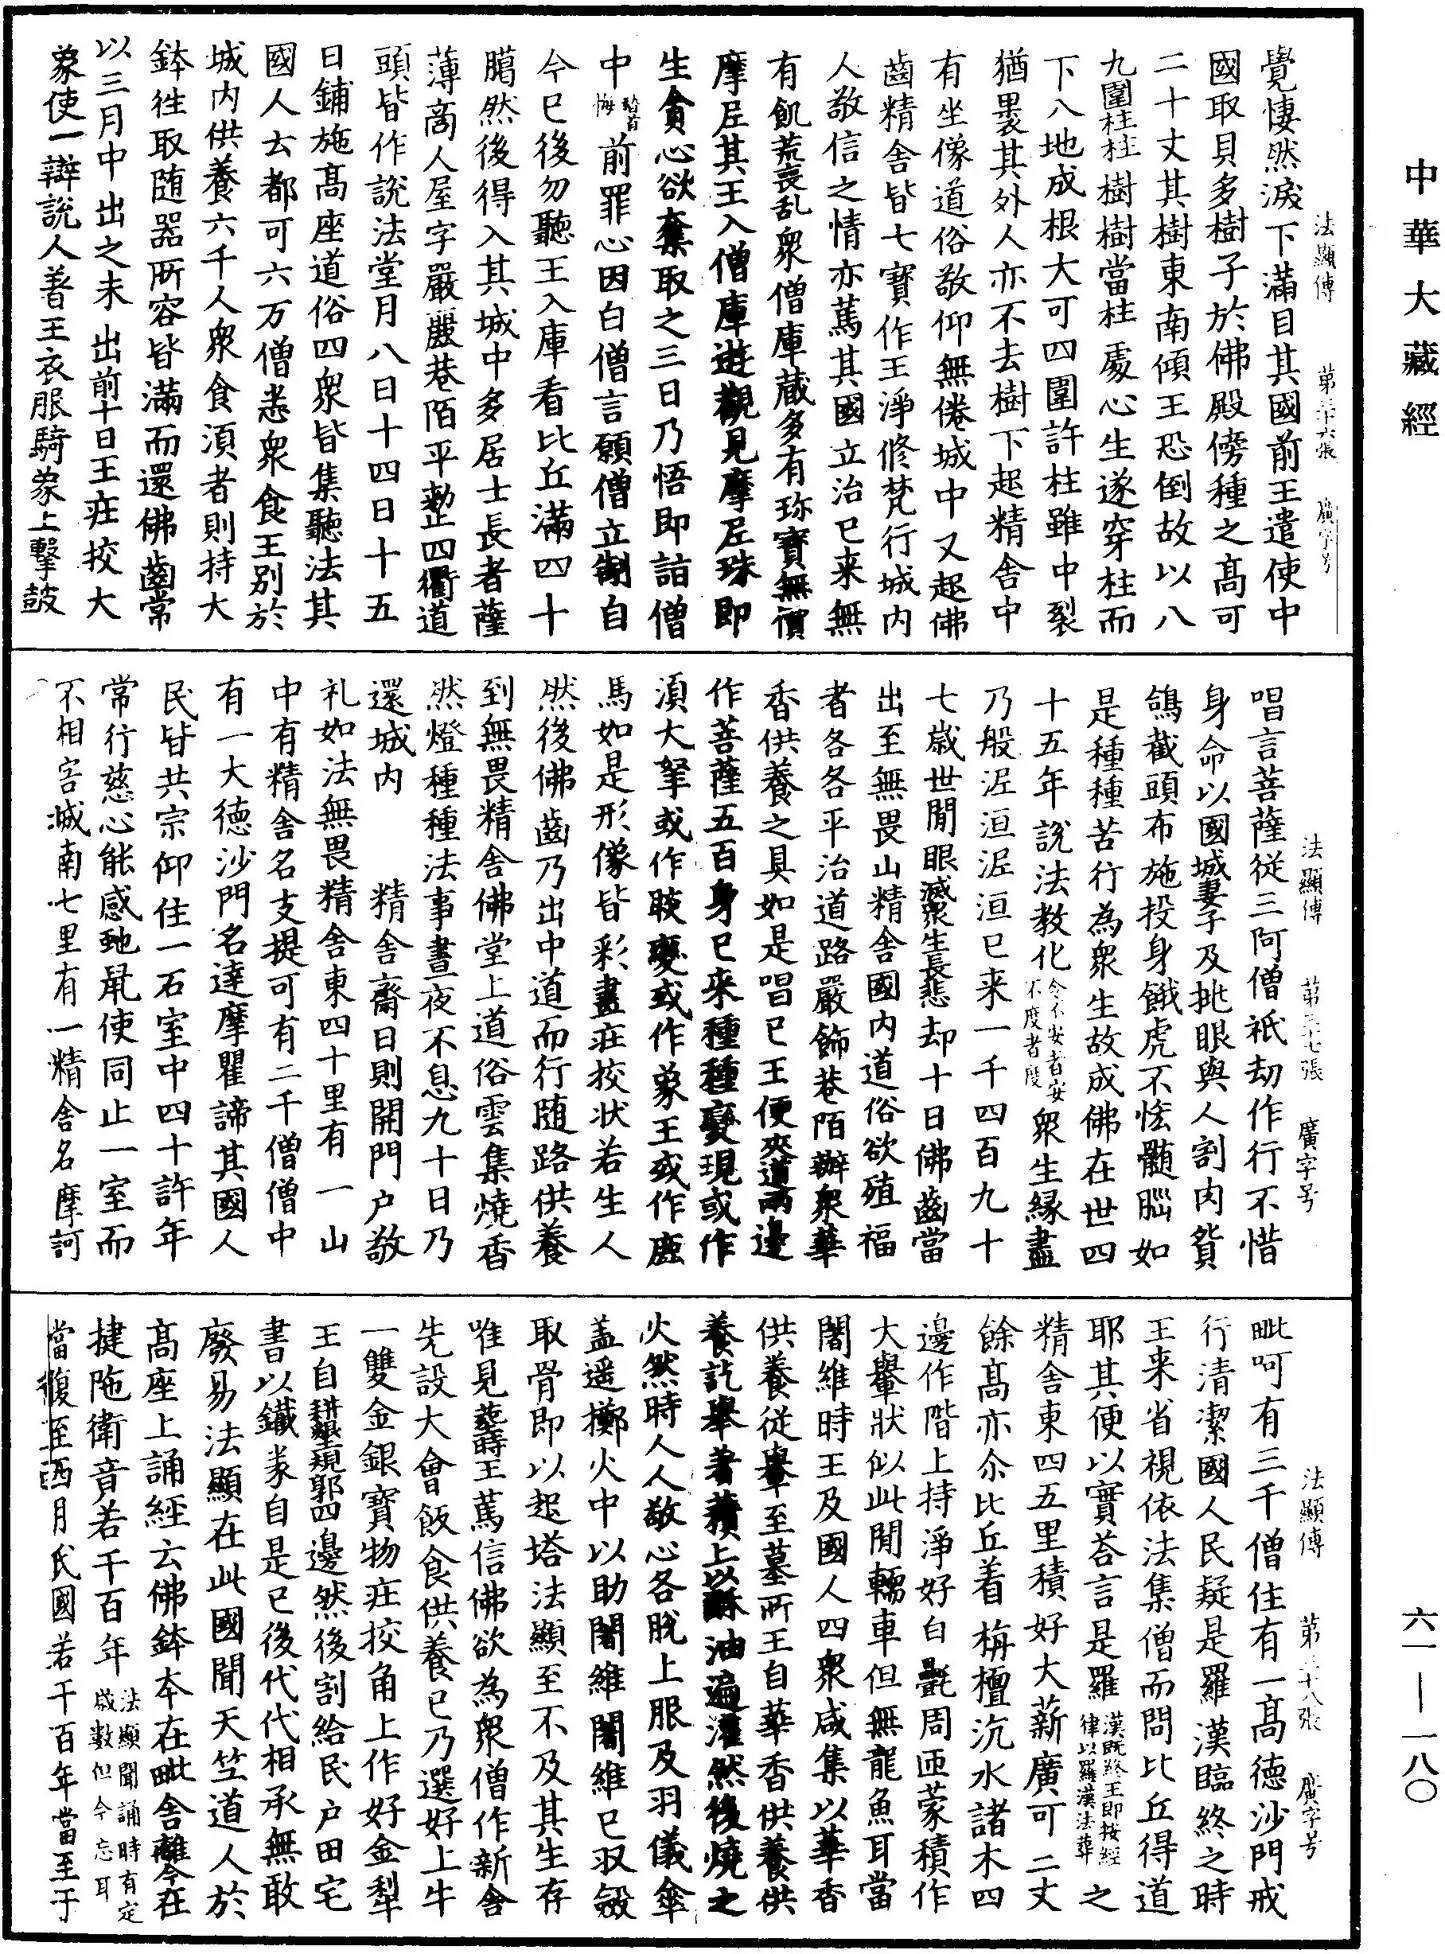 中華大藏經
六一—一八〇
法顯傳　第三十六張　廣字号
覺悽然淚下滿目其國前王遣使中
國取貝多樹子於佛殿傍種之髙可
二十丈其樹東南傾王恐倒故以八
九圍柱柱樹樹當柱處心生遂穿柱而
下入地成根大可四圍許柱雖中裂
猶裹其外人亦不去樹下起精舍中
有坐像道俗敬仰無倦城中又起佛
齒精舍皆七寶作王淨修梵行城内
人敬信之情亦篤其國立治已来無
有飢荒喪乱衆僧庫藏多有珎寶無價
摩尼其王入僧庫遊觀見摩尼珠即
生貪心欲奪取之三日乃悟即詣僧
中稽首悔前罪心因白僧言願僧立制自
今已後勿聽王入庫看比丘滿四十
臈然後得入其城中多居士長者薩
薄商人屋宇嚴麗巷陌平整四衢道
頭皆作說法堂月八日十四日十五
日鋪施髙座道俗四衆皆集聽法其
國人云都可六万僧悉衆食王別於
城内供養六千人衆食湏者則持大
鉢徃取随器所容皆滿而還佛齒常
以三月中出之未出前十日王庄挍大
象使一辯說人著王衣服騎象上擊鼓
法顯傳　第三十七張　廣字号
唱言菩薩從三阿僧祇劫作行不惜
身命以國城妻子及挑眼與人割肉貿
鴿截頭布施投身餓虎不悋髓腦如
是種種苦行為衆生故成佛在世四
十五年說法教化令不安者安不度者度衆生縁盡
乃般泥洹泥洹已来一千四百九十
七歲世閒眼滅衆生長悲却十日佛齒當
出至無畏山精舍國内道俗欲殖福
者各各平治道路嚴飾巷陌辦衆華
香供養之具如是唱已王便夾道兩邊
作菩薩五百身已来種種變現或作
湏大拏或作睒變或作象王或作鹿
馬如是形像皆彩畫庄挍状若生人
然後佛齒乃出中道而行随路供養
到無畏精舍佛堂上道俗雲集燒香
然燈種種法事晝夜不息九十日乃
還城内　精舍齋日則開門户敬
礼如法無畏精舍東四十里有一山
中有精舍名支提可有二千僧僧中
有一大德沙門名達摩瞿諦其國人
民皆共宗仰住一石室中四十許年
常行慈心能感虵鼠使同止一室而
不相害城南七里有一精舍名摩訶
法顯傳　第三十八張　廣字号
毗呵有三千僧住有一髙德沙門戒
行清潔國人民疑是羅漢臨終之時
王来省視依法集僧而問比丘得道
耶其便以實荅言是羅漢既終王即按經律以羅漢法葬之
精舍東四五里積好大薪廣可二丈
餘髙亦尒比丘着栴檀沉水諸木四
邊作階上持淨好白㲲周匝蒙積作
大轝狀似此閒轜車但無龍魚耳當
闍維時王及國人四衆咸集以華香
供養從轝至墓所王自華香供養供
養訖轝著𧂐上以酥油遍灌然後燒之
火然時人人敬心各脫上服及羽儀傘
盖遥擲火中以助闍維闍維已収斂
取骨即以起塔法顯至不及其生存
唯見葬時王篤信佛欲為衆僧作新舍
先設大會飯食供養已乃選好上牛
一雙金銀寶物庄挍角上作好金犁
王自耕墾頃郭四邊然後割給民户田宅
書以鐵券自是已後代代相承無敢
廢易法顯在此國聞天竺道人於
髙座上誦經云佛鉢本在毗舍離今在
揵陁衛音若干百年法顯聞誦時有定歲數但今忘耳
當復至西月氏國若干百年當至于